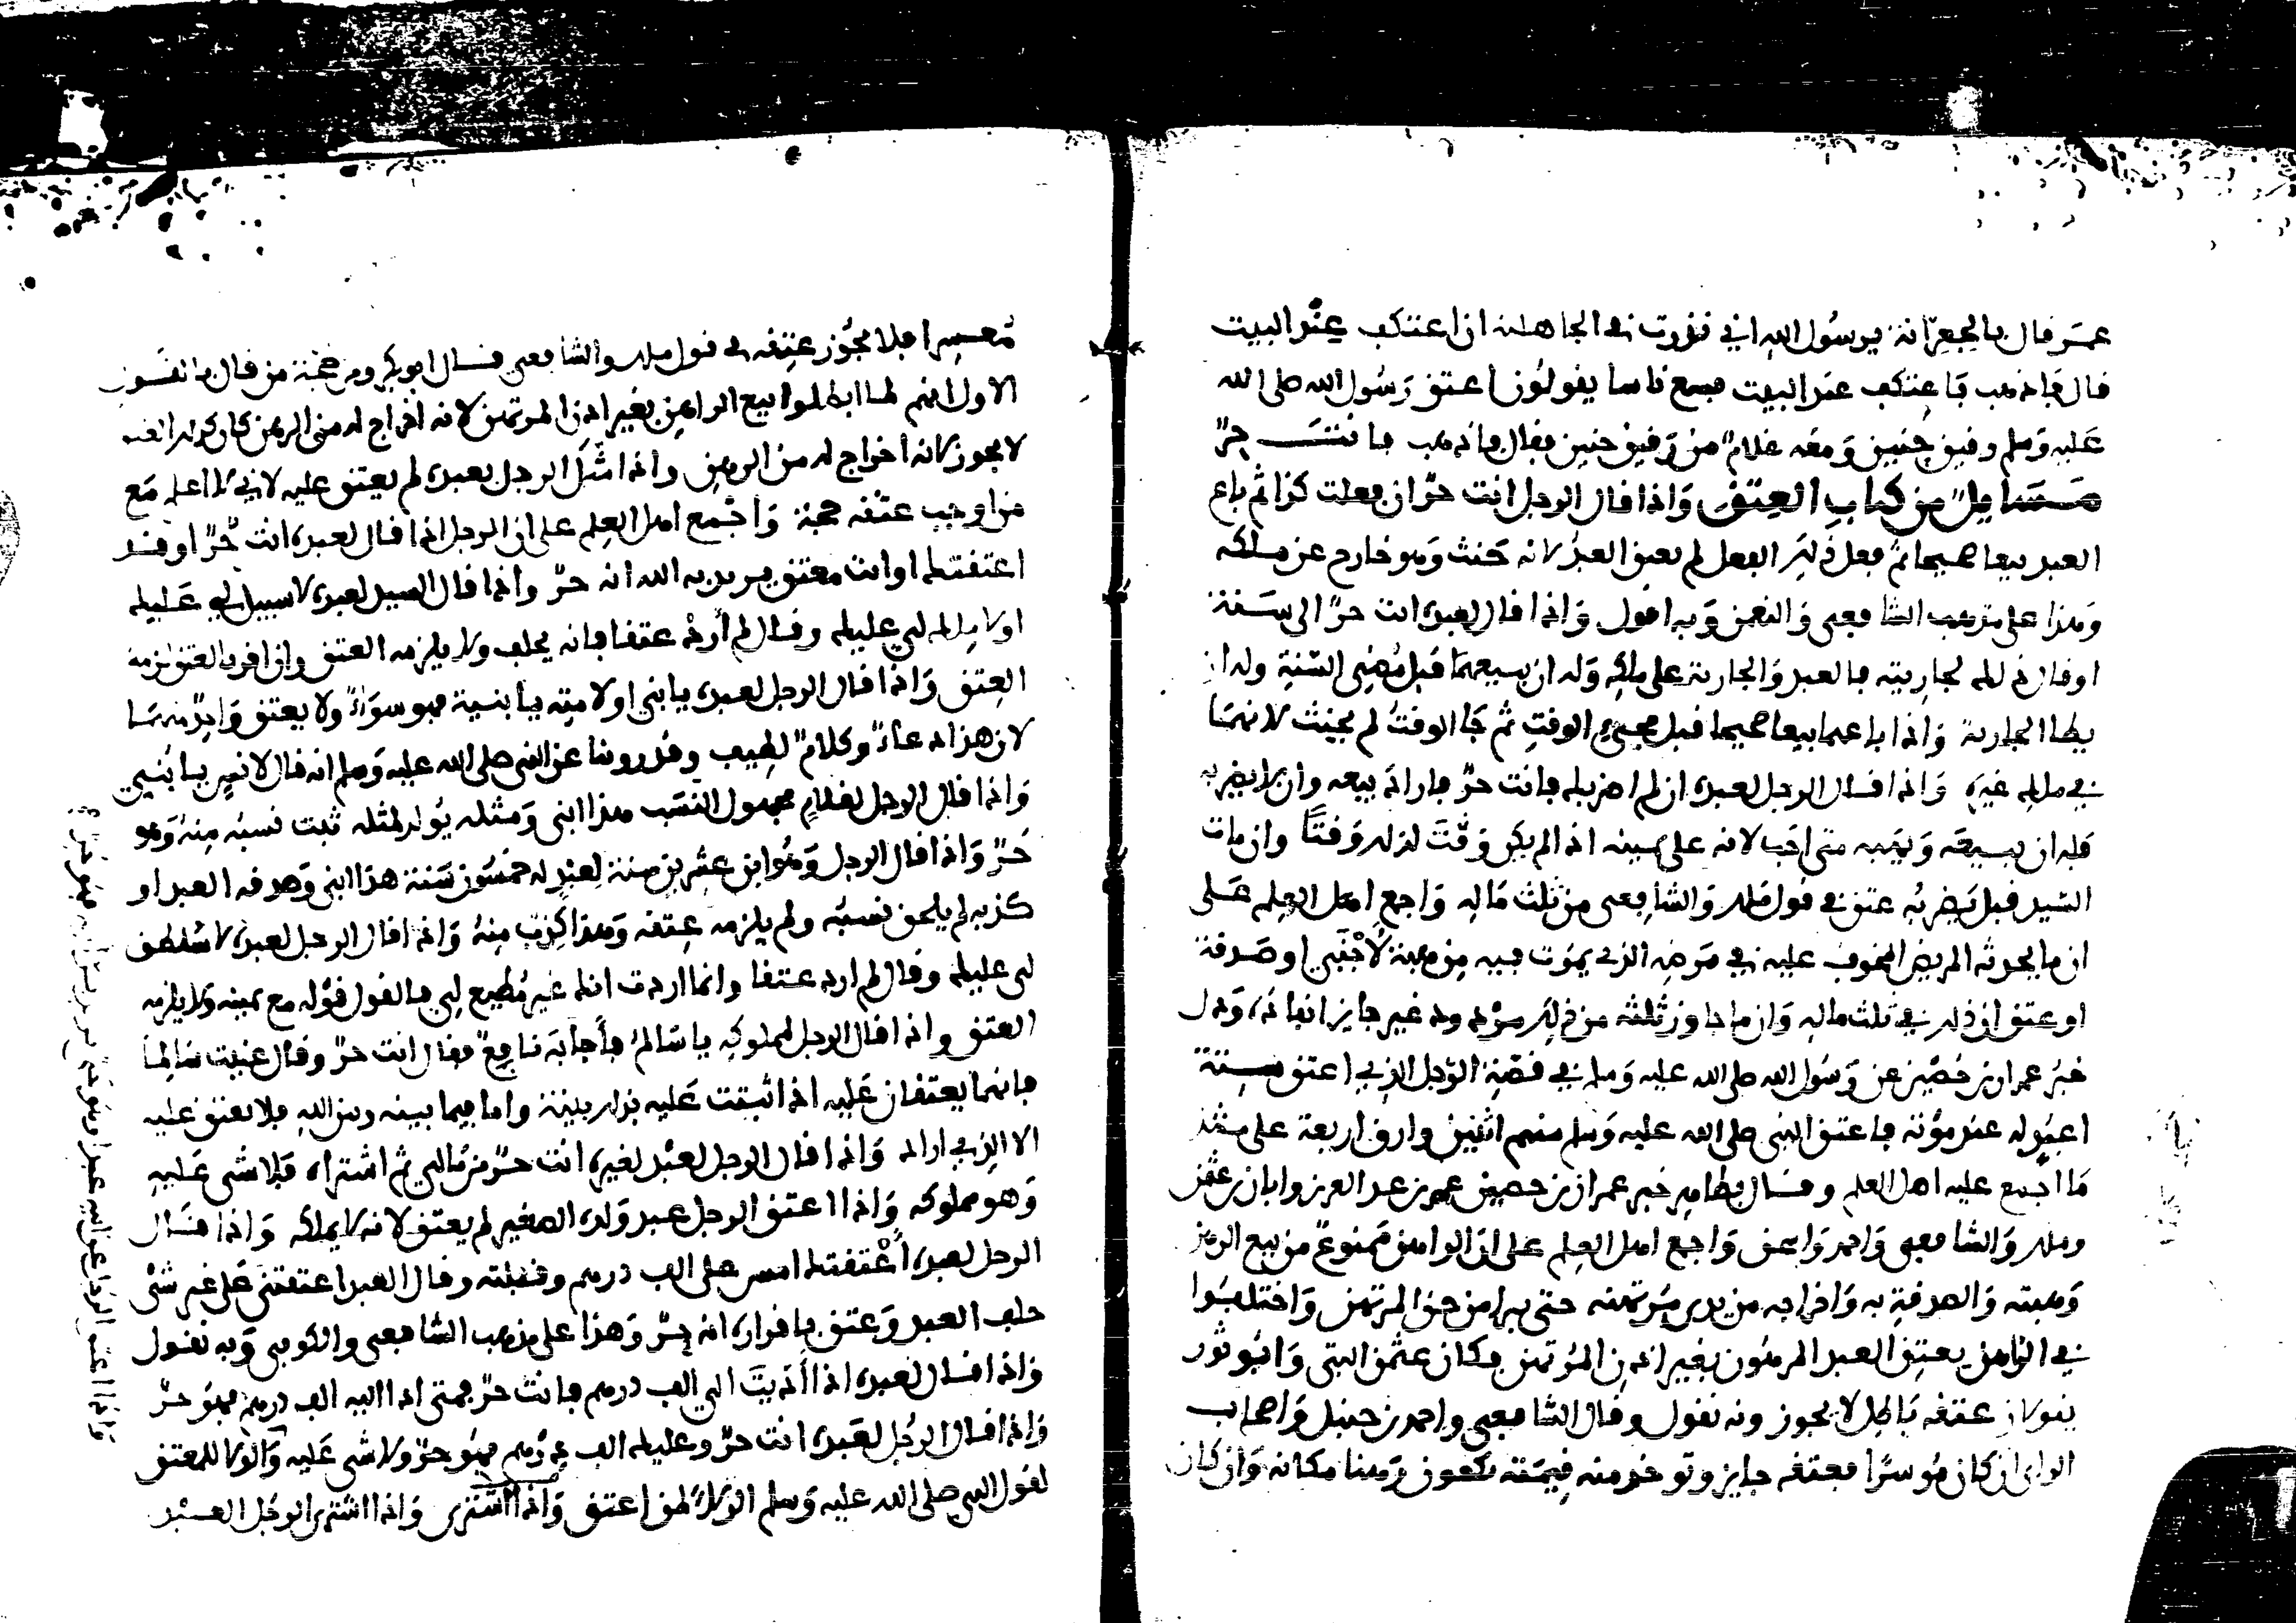 عمر قال بالجعرانة يرسول الله اني نذرت في الجاهلية ان اعتكف عند البيت
قال فاذهب فاعتكف عند البيت فسمع ناسا يقولون اعتق رسول الله صلى الله
عليه وسلم رقيق حنين ومعه غلام من رقيق حنين فقال فاذهب فانت حر
مسايل من كتاب العتق واذا قال الرجل انت حر ان فعلت كذا ثم باع
العبد بيعا صحيحا ثم فعل ذلك الفعل لم يعتق العبد لانه حنث وهو خارج عن ملكه
وهذا على مذهب الشافعي والنعمن وبه اقول واذا قال لعبده انت حر الى سنة
او قال ذلك لجاريته فالعبد والجارية على ملكه وله ان يبيعهما قبل مضي السنة وله ان
يطا الجارية واذا باعهما بيعا صحيحا قبل مجيء الوقت ثم جا الوقت لم يحنث لانهما
في ملك غيره واذا قال الرجل لعبده ان لم اضربك فانت حر فاراد بيعه وان لا يضربه
فله ان يبيعه ويهبه متى احب لانه على يمينه اذا لم يكن وقت لذلك وقتا وان مات
السيد قبل يضربه عتق في قول ملك والشافعي من ثلث ماله واجمع اهل العلم على
ان ما يحدثه المريض المخوف عليه في مرضه الذي يموت فيه من هبة لاجنبي او صدقة
او عتق ان ذلك في ثلث ماله وان ما جاوز ثلثه من ذلك مردود غير جايز انفاذه ودل
خبر عمران بن حصين عن رسول الله صلى الله عليه وسلم في قصة الرجل الذي اعتق ستة
اعبد له عند موته فاعتق النبي صلى الله عليه وسلم منهم اثنين وارق اربعة على مثل
ما اجمع عليه اهل العلم وقال بظاهر خبر عمران بن حصين عمر بن عبد العزيز وابان بن عثمن
وملك والشافعي واحمد واسحق واجمع اهل العلم على ان الراهن ممنوع من بيع الرهن
وهبته والصدقة به واخراجه من يدي مرتهنه حتى يبرا من حق المرتهن واختلفوا
في الراهن يعتق العبد المرهون بغير اذن المرتهن فكان عثمن البتي وابو ثور
يقولان عتقه باطل لا يجوز وبه نقول وقال الشافعي واحمد بن حنبل واصحاب
الراي ان كان موسرا فعتقه جايز وتوخذ منه قيمته تكون رهنا مكانه وان كان
معسرا فلا يجوز عتقه في قول ملك والشافعي قال ابو بكر ومن حجة من قال بالقول
الاول انهم لما ابطلوا بيع الراهن بغير اذن المرتهن لانه اخراج له من الرهن كان كذلك العتق
لا يجوز لانه اخراج له من الرهن واذا مثل الرجل بعبده لم يعتق عليه لاني لا اعلم مع
من اوجب عتقه حجة واجمع اهل العلم على ان الرجل اذا قال لعبده انت حر او قد
اعتقتك او انت معتق يريد به الله انه حر واذا قال السيد لعبده لا سبيل لي عليك
او لا ملك لي عليك وقال لم أرد عتقا فانه يحلف ولا يلزمه العتق وان اقر بالعتق لزمه
العتق واذا قال الرجل لعبده يا بني او لامته يا بنية فهو سوا ولا يعتق واحد منهما
لان هذا دعا وكلام لطيف وقد روينا عن النبي صلى الله عليه وسلم انه قال لانس يا بني
واذا قال الرجل لغلام مجهول النسب هذا ابني ومثله يولد لمثله ثبت نسبه منه وهو
حر واذا قال الرجل وهو ابن عشرين سنة لعبد له خمسون سنة هذا ابني وصدقه العبد او
كذبه لم يلحق نسبه ولم يلزمه عتقه وهذا كذب منه واذا قال الرجل لعبده لا سلطن
لي عليك وقال لم ارد عتقا وانما اردت انك غير مطيع لي فالقول قوله مع يمينه ولا يلزمه
العتق واذا قال الرجل لمملوكه يا سالم فأجابه نافع فقال انت حر وقال عنيت سالما
فانهما يعتقان عليه اذا ثبتت عليه بذلك بينة واما فيما بينه وبين الله فلا يعتق عليه
الا الذي اراد واذا قال الرجل لعبد لغيره انت حر من مالي ثم اشتراه فلا شي عليه
وهو مملوكه واذا اعتق الرجل عبد ولده الصغير لم يعتق لانه لا يملكه واذا قال
الرجل لعبده أعتقتك امس على الف درهم وقبلته وقال العبد اعتقتني على غير شي
حلف العبد وعتق باقراره انه حر وهذا على مذهب الشافعي والكوفي وبه نقول
واذا قال لعبده اذا أديت الي الف درهم فانت حر فمتى ادا اليه الف درهم فهو حر
واذا قال الرجل لعبده انت حر وعليك الف درهم فهو حر ولا شي عليه والولا للمعتق
لقول النبي صلى الله عليه وسلم الولا لمن اعتق واذا اشترى واذا اشترى الرجل العبد